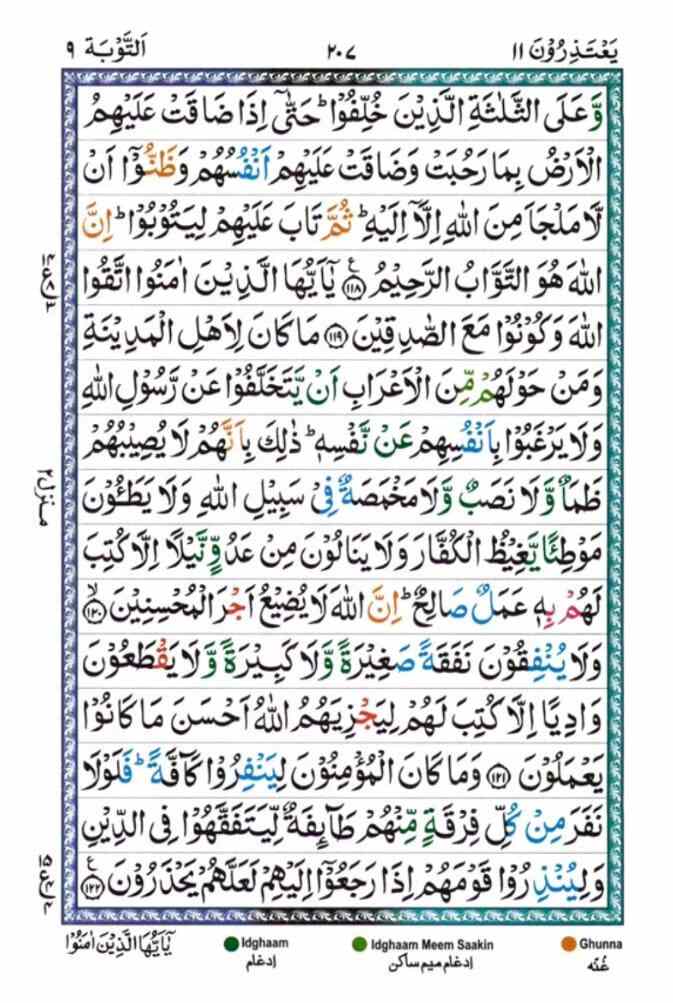 يَعۡتَذِرُوۡنَ ١١ ٢٠٧ اَلتَّوۡبَة ٩
وَّعَلَى الثَّلٰثَةِ الَّذِيۡنَ خُلِّفُوۡا ؕ حَتّٰٓى اِذَا ضَاقَتۡ عَلَيۡهِمُ
الۡاَرۡضُ بِمَا رَحُبَتۡ وَضَاقَتۡ عَلَيۡهِمۡ اَنۡفُسُهُمۡ وَظَنُّوۡۤا اَنۡ
لَّا مَلۡجَاَ مِنَ اللّٰهِ اِلَّاۤ اِلَيۡهِ ؕ ثُمَّ تَابَ عَلَيۡهِمۡ لِيَتُوۡبُوۡا ؕ اِنَّ
اللّٰهَ هُوَ التَّوَّابُ الرَّحِيۡمُ ﴿۱۱۸﴾ يٰۤاَيُّهَا الَّذِيۡنَ اٰمَنُوا اتَّقُوا
اللّٰهَ وَكُوۡنُوۡا مَعَ الصّٰدِقِيۡنَ ﴿۱۱۹﴾ مَا كَانَ لِاَهۡلِ الۡمَدِيۡنَةِ
وَمَنۡ حَوۡلَهُمۡ مِّنَ الۡاَعۡرَابِ اَنۡ يَّتَخَلَّفُوۡا عَنۡ رَّسُوۡلِ اللّٰهِ
وَلَا يَرۡغَبُوۡا بِاَنۡفُسِهِمۡ عَنۡ نَّفۡسِهٖ ؕ ذٰلِكَ بِاَنَّهُمۡ لَا يُصِيۡبُهُمۡ
ظَمَاٌ وَّلَا نَصَبٌ وَّلَا مَخۡمَصَةٌ فِىۡ سَبِيۡلِ اللّٰهِ وَلَا يَطَـئُوۡنَ
مَوۡطِئًا يَّغِيۡظُ الۡكُفَّارَ وَلَا يَنَالُوۡنَ مِنۡ عَدُوٍّ نَّيۡلًا اِلَّا كُتِبَ
لَهُمۡ بِهٖ عَمَلٌ صَالِحٌ ؕ اِنَّ اللّٰهَ لَا يُضِيۡعُ اَجۡرَ الۡمُحۡسِنِيۡنَ ۙ﴿۱۲۰﴾
وَلَا يُنۡفِقُوۡنَ نَفَقَةً صَغِيۡرَةً وَّلَا كَبِيۡرَةً وَّلَا يَقۡطَعُوۡنَ
وَادِيًا اِلَّا كُتِبَ لَهُمۡ لِيَجۡزِيَهُمُ اللّٰهُ اَحۡسَنَ مَا كَانُوۡا
يَعۡمَلُوۡنَ ﴿۱۲۱﴾ وَمَا كَانَ الۡمُؤۡمِنُوۡنَ لِيَنۡفِرُوۡا كَآفَّةً ؕ فَلَوۡلَا
نَفَرَ مِنۡ كُلِّ فِرۡقَةٍ مِّنۡهُمۡ طَآئِفَةٌ لِّيَتَفَقَّهُوۡا فِى الدِّيۡنِ
وَلِيُنۡذِرُوۡا قَوۡمَهُمۡ اِذَا رَجَعُوۡۤا اِلَيۡهِمۡ لَعَلَّهُمۡ يَحۡذَرُوۡنَ ﴿۱۲۲﴾
منزل ۲
يٰۤاَيُّهَا الَّذِيۡنَ اٰمَنُوۡا
Idghaam
ادغام
Idghaam Meem Saakin
ادغام میم ساکن
Ghunna
غُنّه